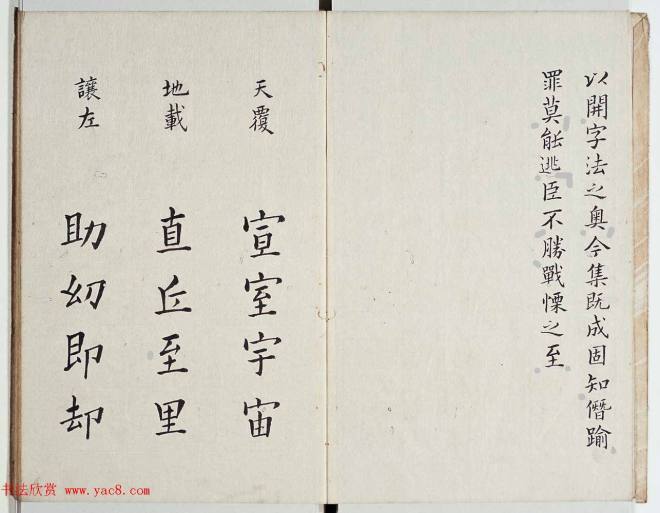 以開字法之奧今集既成固知僭踰
罪莫能逃臣不勝戰慄之至
天覆
宣室宇宙
地載
直丘至里
讓左
助幼即却
书法欣赏 www.yac8.com